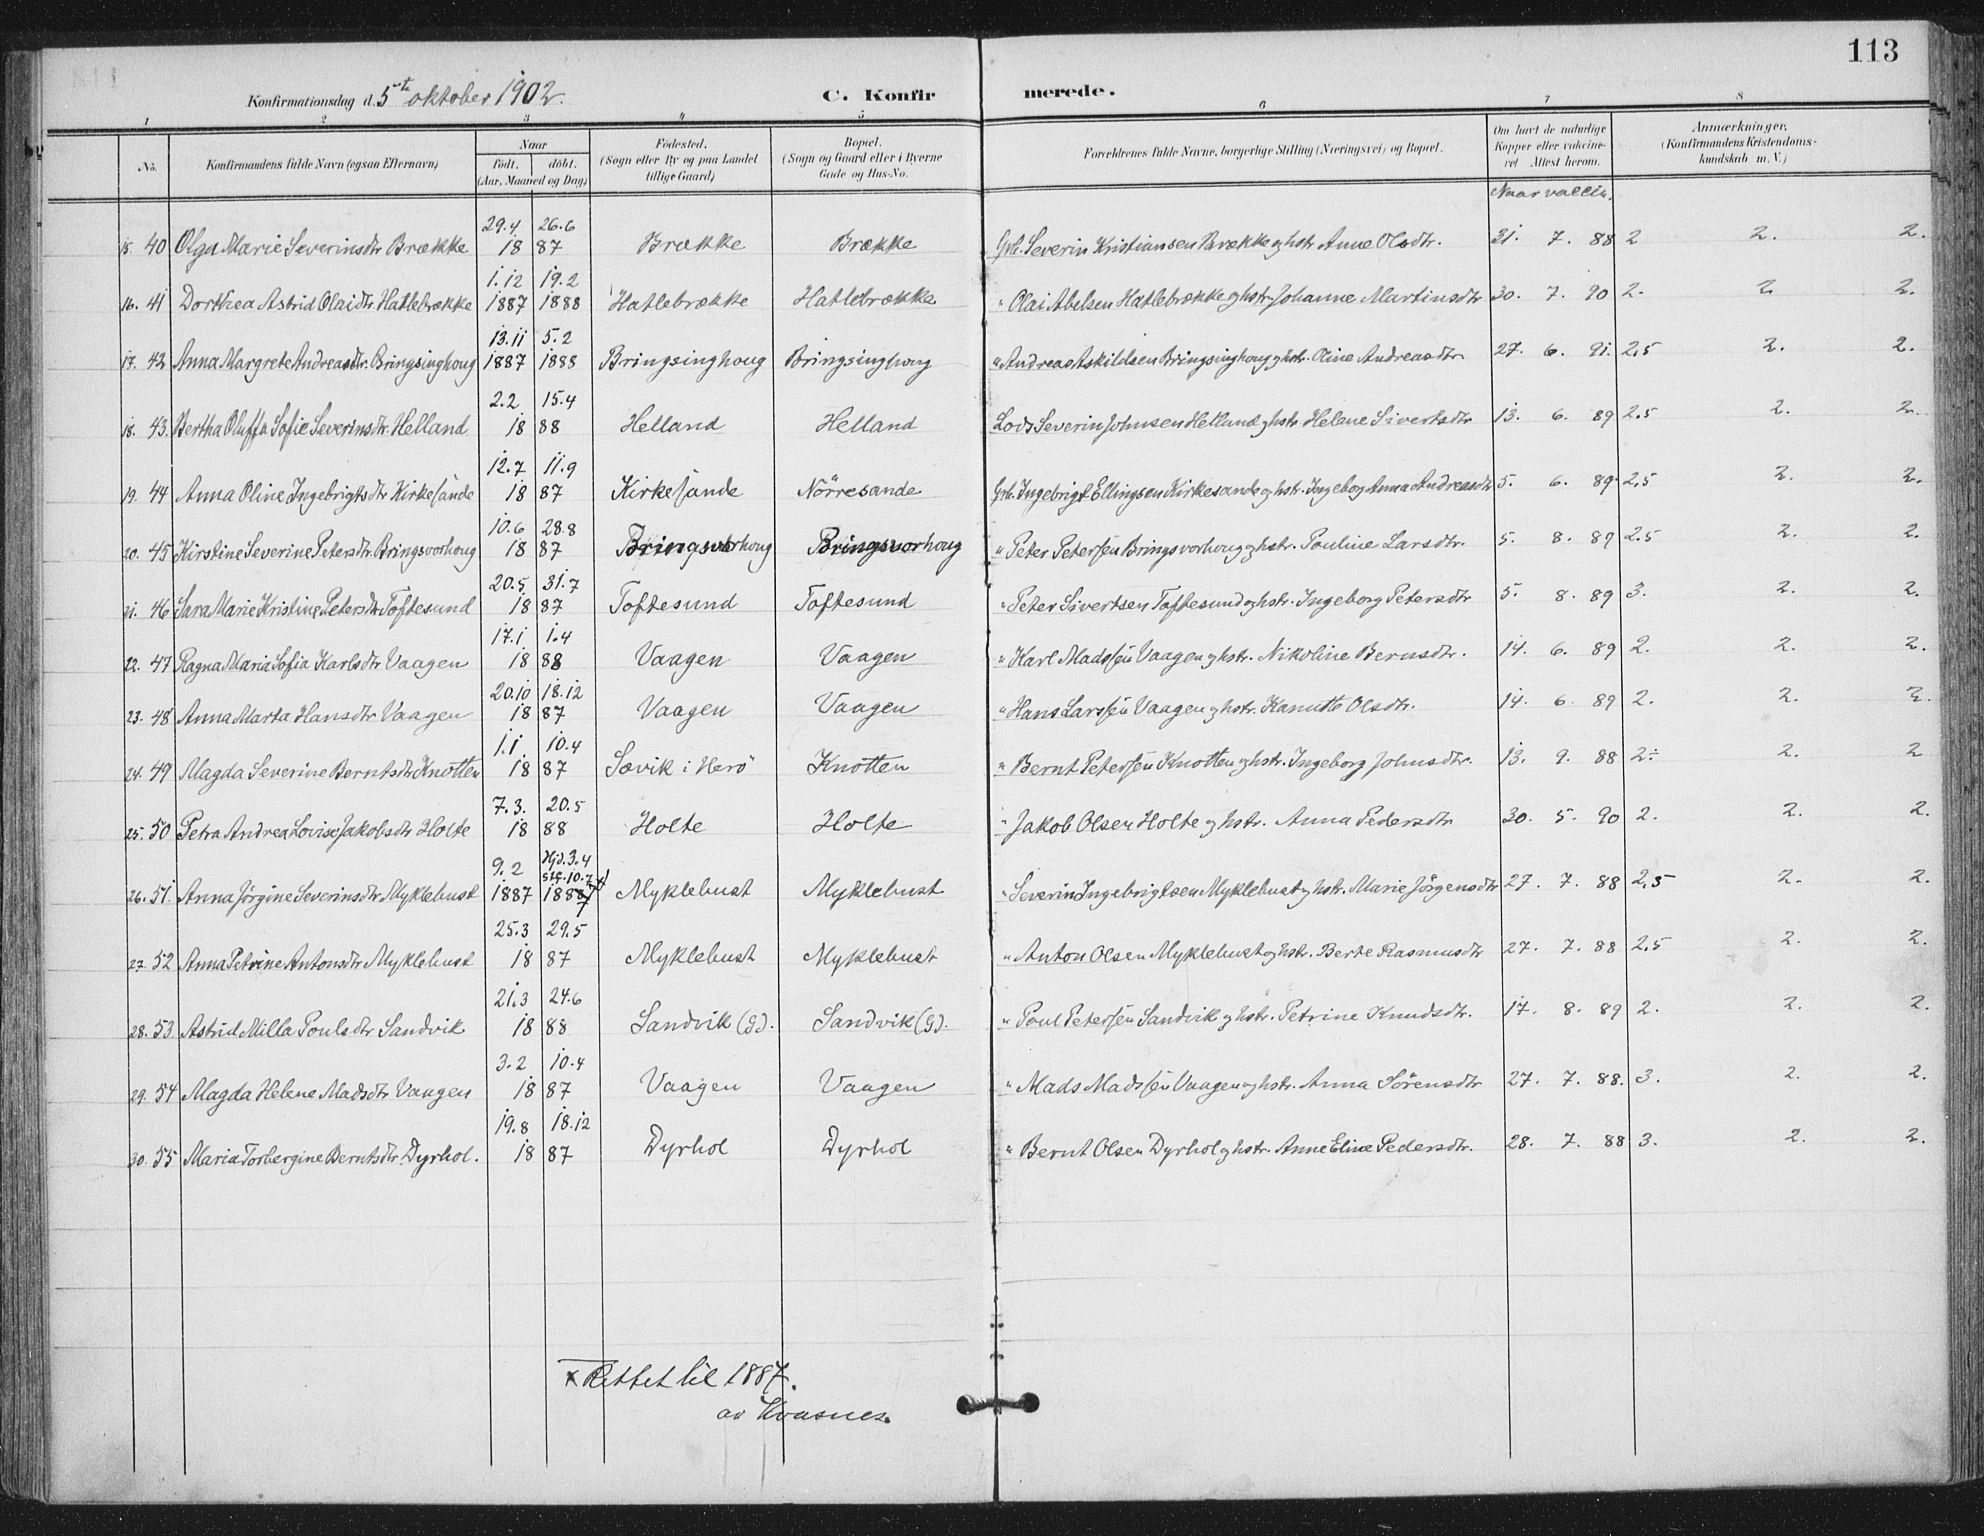 113
Konfirmationsdag d. 5te oktober 1902.
C. Konfirmerede.
1 2 3 4 5 6 7 8
No. Konfirmandens fulde Navn (ogsaa Efternavn) Naar født. døbt. (Aar, Maaned og Dag) Fødested. (Sogn eller By og paa Landet tillige Gaard) Bopæl. (Sogn og Gaard eller i Byerne Gade og Hus-No. Forældrenes fulde Navne, borgerlige Stilling (Næringsvei) og Bopæl. Om havt de naturlige Kopper eller vakcineret Attest herom. Anmærkninger. (Konfirmandens Kristendomskundskab m. V.)
Naar vaccin.
15. 40 Olga Marie Severinsdtr Brække 29.4 1887 26.6 Brække Brække Grb. Severin Kristiansen Brække og hstr. Anne Olsdtr. 21. 7. 88 2 2. 2.
16. 41 Dorthea Astrid Olaidtr. Hatlebrække 1.12 1887 19.2 1888 Hatlebrække Hatlebrække " Olai Abelsen Hatlebrække og hstr. Johanne Martinsdtr 30. 7. 90 2. 2 2.
17. 42 Anna Margrete Andreasdtr. Bringsinghoug 13.11 1887 5.2 1888 Bringsinghoug Bringsinghoug " Andreas Askildsen Bringsinghoug og hstr. Oline Andreasdtr. 27. 6. 91. 2,5 2. 2.
18. 43. Bertha Oluffa Sofie Severinsdtr. Helland 2.2 15.4 1888 Helland Helland Lods Severin Johnsen Helland og hstr. Helene Sivertsdtr 13. 6. 89 2,5 2. 2.
19. 44 Anna Oline Ingebrigtsdtr Kirkesande 12.7 11.9 1887 Kirkesande Nörresande Grb. Ingebrigt Ellingsen Kirkesande og hstr. Ingeborg Anna Andreasdtr 5. 6. 89 2,5 2. 2.
20. 45 Kirstine Severine Petersdtr. Bringsvorhoug 10.6 28.8 1887 Bringsvorhoug Bringsvorhoug " Peter Petersen Bringsvorhoug og hstr. Pouline Larsdtr. 5. 8. 89 2.5 2. 2.
21. 46 Sara Marie Kristine Petersdtr Toftesund 20.5 31.7 1887 Toftesund Toftesund " Peter Sivertsen Toftesund og hstr. Ingeborg Petersdtr 5. 8. 89 3. 2. 2.
22. 47 Ragna Maria Sofia Karlsdtr Vaagen 17.1 1.4 1888 Vaagen Vaagen " Karl Madssen Vaagen og hstr. Nikoline Berntsdtr. 14. 6. 89 2. 2. 2.
23. 48 Anna Marta Hansdtr Vaagen 20.10 18.12 1887 Vaagen Vaagen " Hans Larssen Vaagen og hstr. Kanutte Olsdtr. 14. 6. 89 2. 2. 2.
24. 49 Magda Severine Berntsdtr Knotten 1.1 10.4 1887 Sævik i Herö Knotten " Bernt Petersen Knotten og hstr. Ingeborg Johnsdtr. 13. 9. 88 2÷ 2. 2
25. 50 Petra Andrea Lovise Jakobsdtr Holte 7.3. 20.5 1888 Holte Holte " Jakob Olsen Holte og hstr. Anna Pedersdtr 30. 5. 90 2. 2. 2.
26. 51. Anna Jørgine Severinsdtr Myklebust 9.2 1887 Hjd. 3.4 stf. 10.7 1888 x 7 Myklebust Myklebust " Severin Ingebrigtsen Myklebust og hstr. Marie Jörgensdtr 27. 7. 88 2,5 2. 2.
27. 52 Anna Petrine Antonsdtr Myklebust 25.3 29.5 1887 Myklebust Myklebust " Anton Olsen Myklebust og hstr. Berte Rasmusdtr 27. 7. 88 2,5 2. 2.
28. 53. Astrid Milla Poulsdtr Sandvik 21.3 24.6 1888 Sandvik (G). Sandvik (G). " Poul Petersen Sandvik og hstr. Petrine Knudsdtr. 17. 8. 89 2. 2. 2.
29. 54 Magda Helene Madsdtr Vaagen 3.2 10.4 1887 Vaagen Vaagen " Mads Madssen Vaagen og hstr. Anna Sörensdtr 27. 7. 88. 3. 2. 2.
30. 55 Maria Torbergine Berntsdtr. Dyrhol. 19.8 18.12 1887 Dyrhol Dyrhol " Bernt Olsen Dyrhol og hstr. Anne Eline Pedersdtr. 28. 7. 88 3. 2. 2.
x Rettet til 1887.
av Kvasnes.